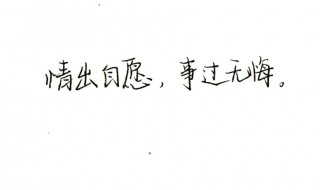 情出自愿，事过无悔。